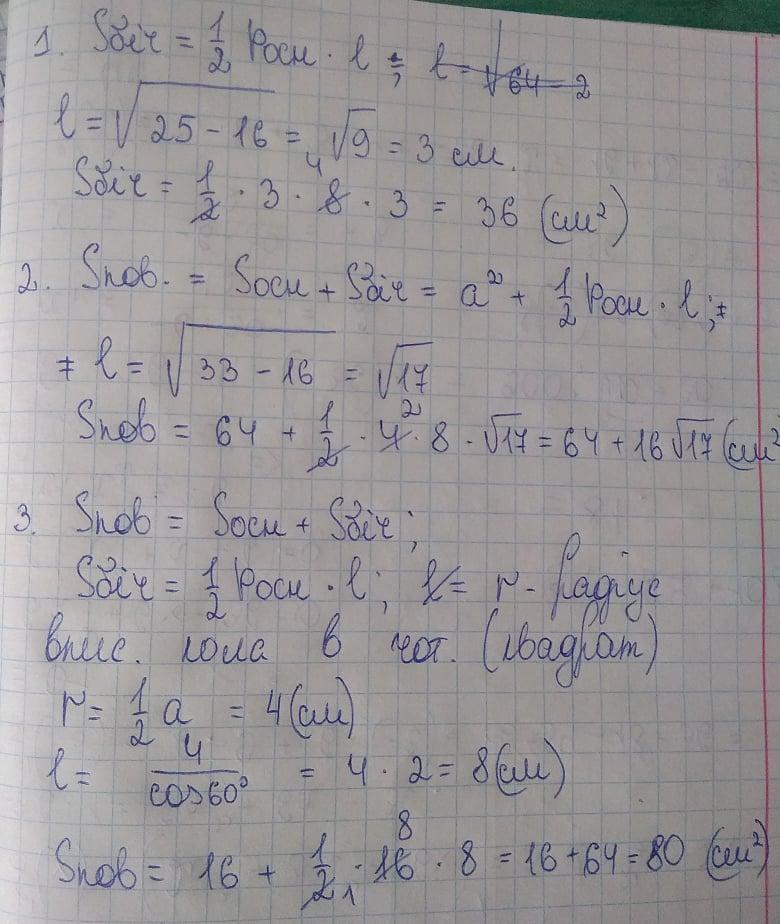 1. Sбіч = 1/2 Pосн · l ; l = √64 - 2
l = √25 - 16 = √9 = 3 см.
Sбіч = 1/2 · 3 · 8 4 · 3 = 36 (см²)
2. Sпов. = Sосн + Sбіч = a² + 1/2 Pосн · l ; ≠
≠ l = √33 - 16 = √17
Sпов = 64 + 1/2 · 4 2 · 8 · √17 = 64 + 16√17 (см²
3. Sпов = Sосн + Sбіч ;
Sбіч = 1/2 Pосн · l ; l = r - радіус
впис. кола в чот. (квадрат)
r = 1/2 a = 4 (см)
l = 4/cos60° = 4 · 2 = 8 (см)
Sпов = 16 + 1/2 1 · 16 8 · 8 = 16 + 64 = 80 (см²)